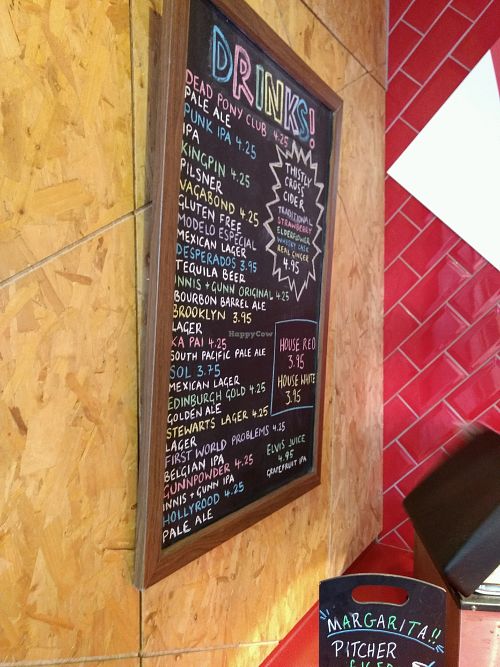 DRINKS!
DEAD PONY CLUB 4.25
PALE ALE
PUNK IPA 4.25
IPA
KINGPIN 4.25
PILSNER
VAGABOND 4.25
GLUTEN FREE
MODELO ESPECIAL
MEXICAN LAGER
DESPERADOS 3.95
TEQUILA BEER
INNIS + GUNN ORIGINAL 4.25
BOURBON BARREL ALE
BROOKLYN 3.95
LAGER
KA PAI 4.25
SOUTH PACIFIC PALE ALE
SOL 3.75
MEXICAN LAGER
EDINBURGH GOLD 4.25
GOLDEN ALE
STEWARTS LAGER 4.25
LAGER
FIRST WORLD PROBLEMS 4.25
BELGIAN IPA
GUNNPOWDER 4.25
INNIS + GUNN IPA
HOLLYROOD 4.25
PALE ALE
THISTLY
CROSS
CIDER
TRADITIONAL
STRAWBERRY
ELDERFLOWER
WHISKY CASK
REAL GINGER
4.95
HOUSE RED
3.95
HOUSE WHITE
3.95
ELVIS JUICE
4.95
GRAPEFRUIT IPA
HappyCow
MARGARITA!!
PITCHER